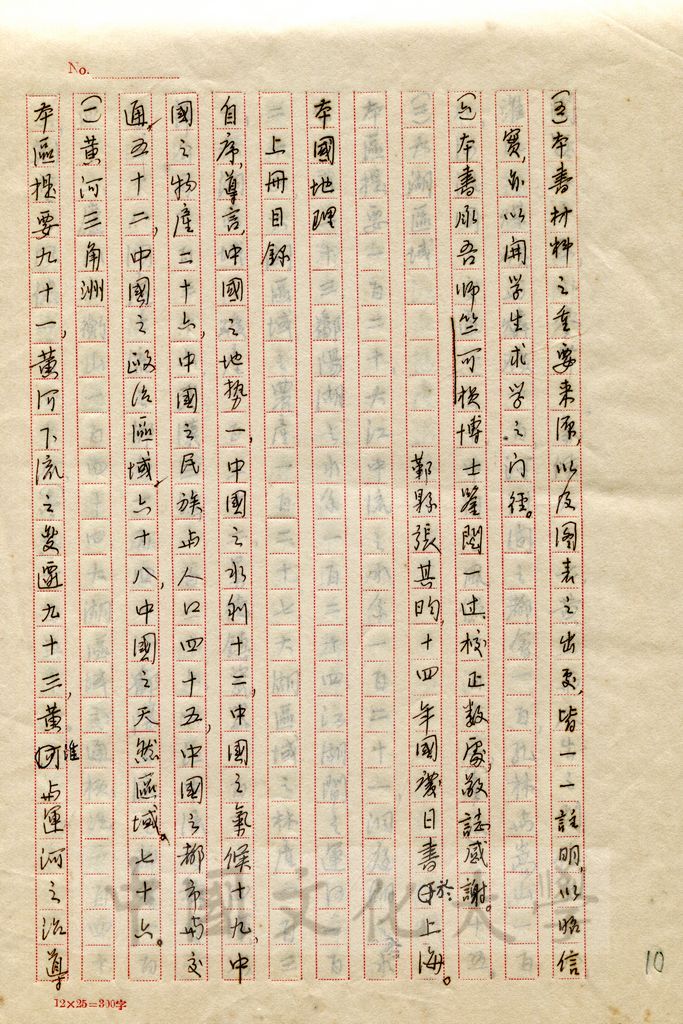 No.
(五)本書材料之重要來源,以及圖表之出處,皆一一註明,以昭信
實,亦以開學生求學之門徑。
(六)本書承吾師竺可楨博士鑒閱一過,校正數處,敬誌感謝。
鄞縣張其昀,十四年國慶日書於上海。
本國地理
上冊目錄
自序,導言,中國之地勢一,中國之水利十二,中國之氣候十九,中
國之物產二十六,中國之民族與人口四十五,中國之都市與交
通五十二,中國之政治區域六十八,中國之天然區域七十六。
(一)黃河三角洲
本區提要九十一,黃河下流之變遷九十三,黃淮與運河之治導
12×25=300字
中國文化大學
10